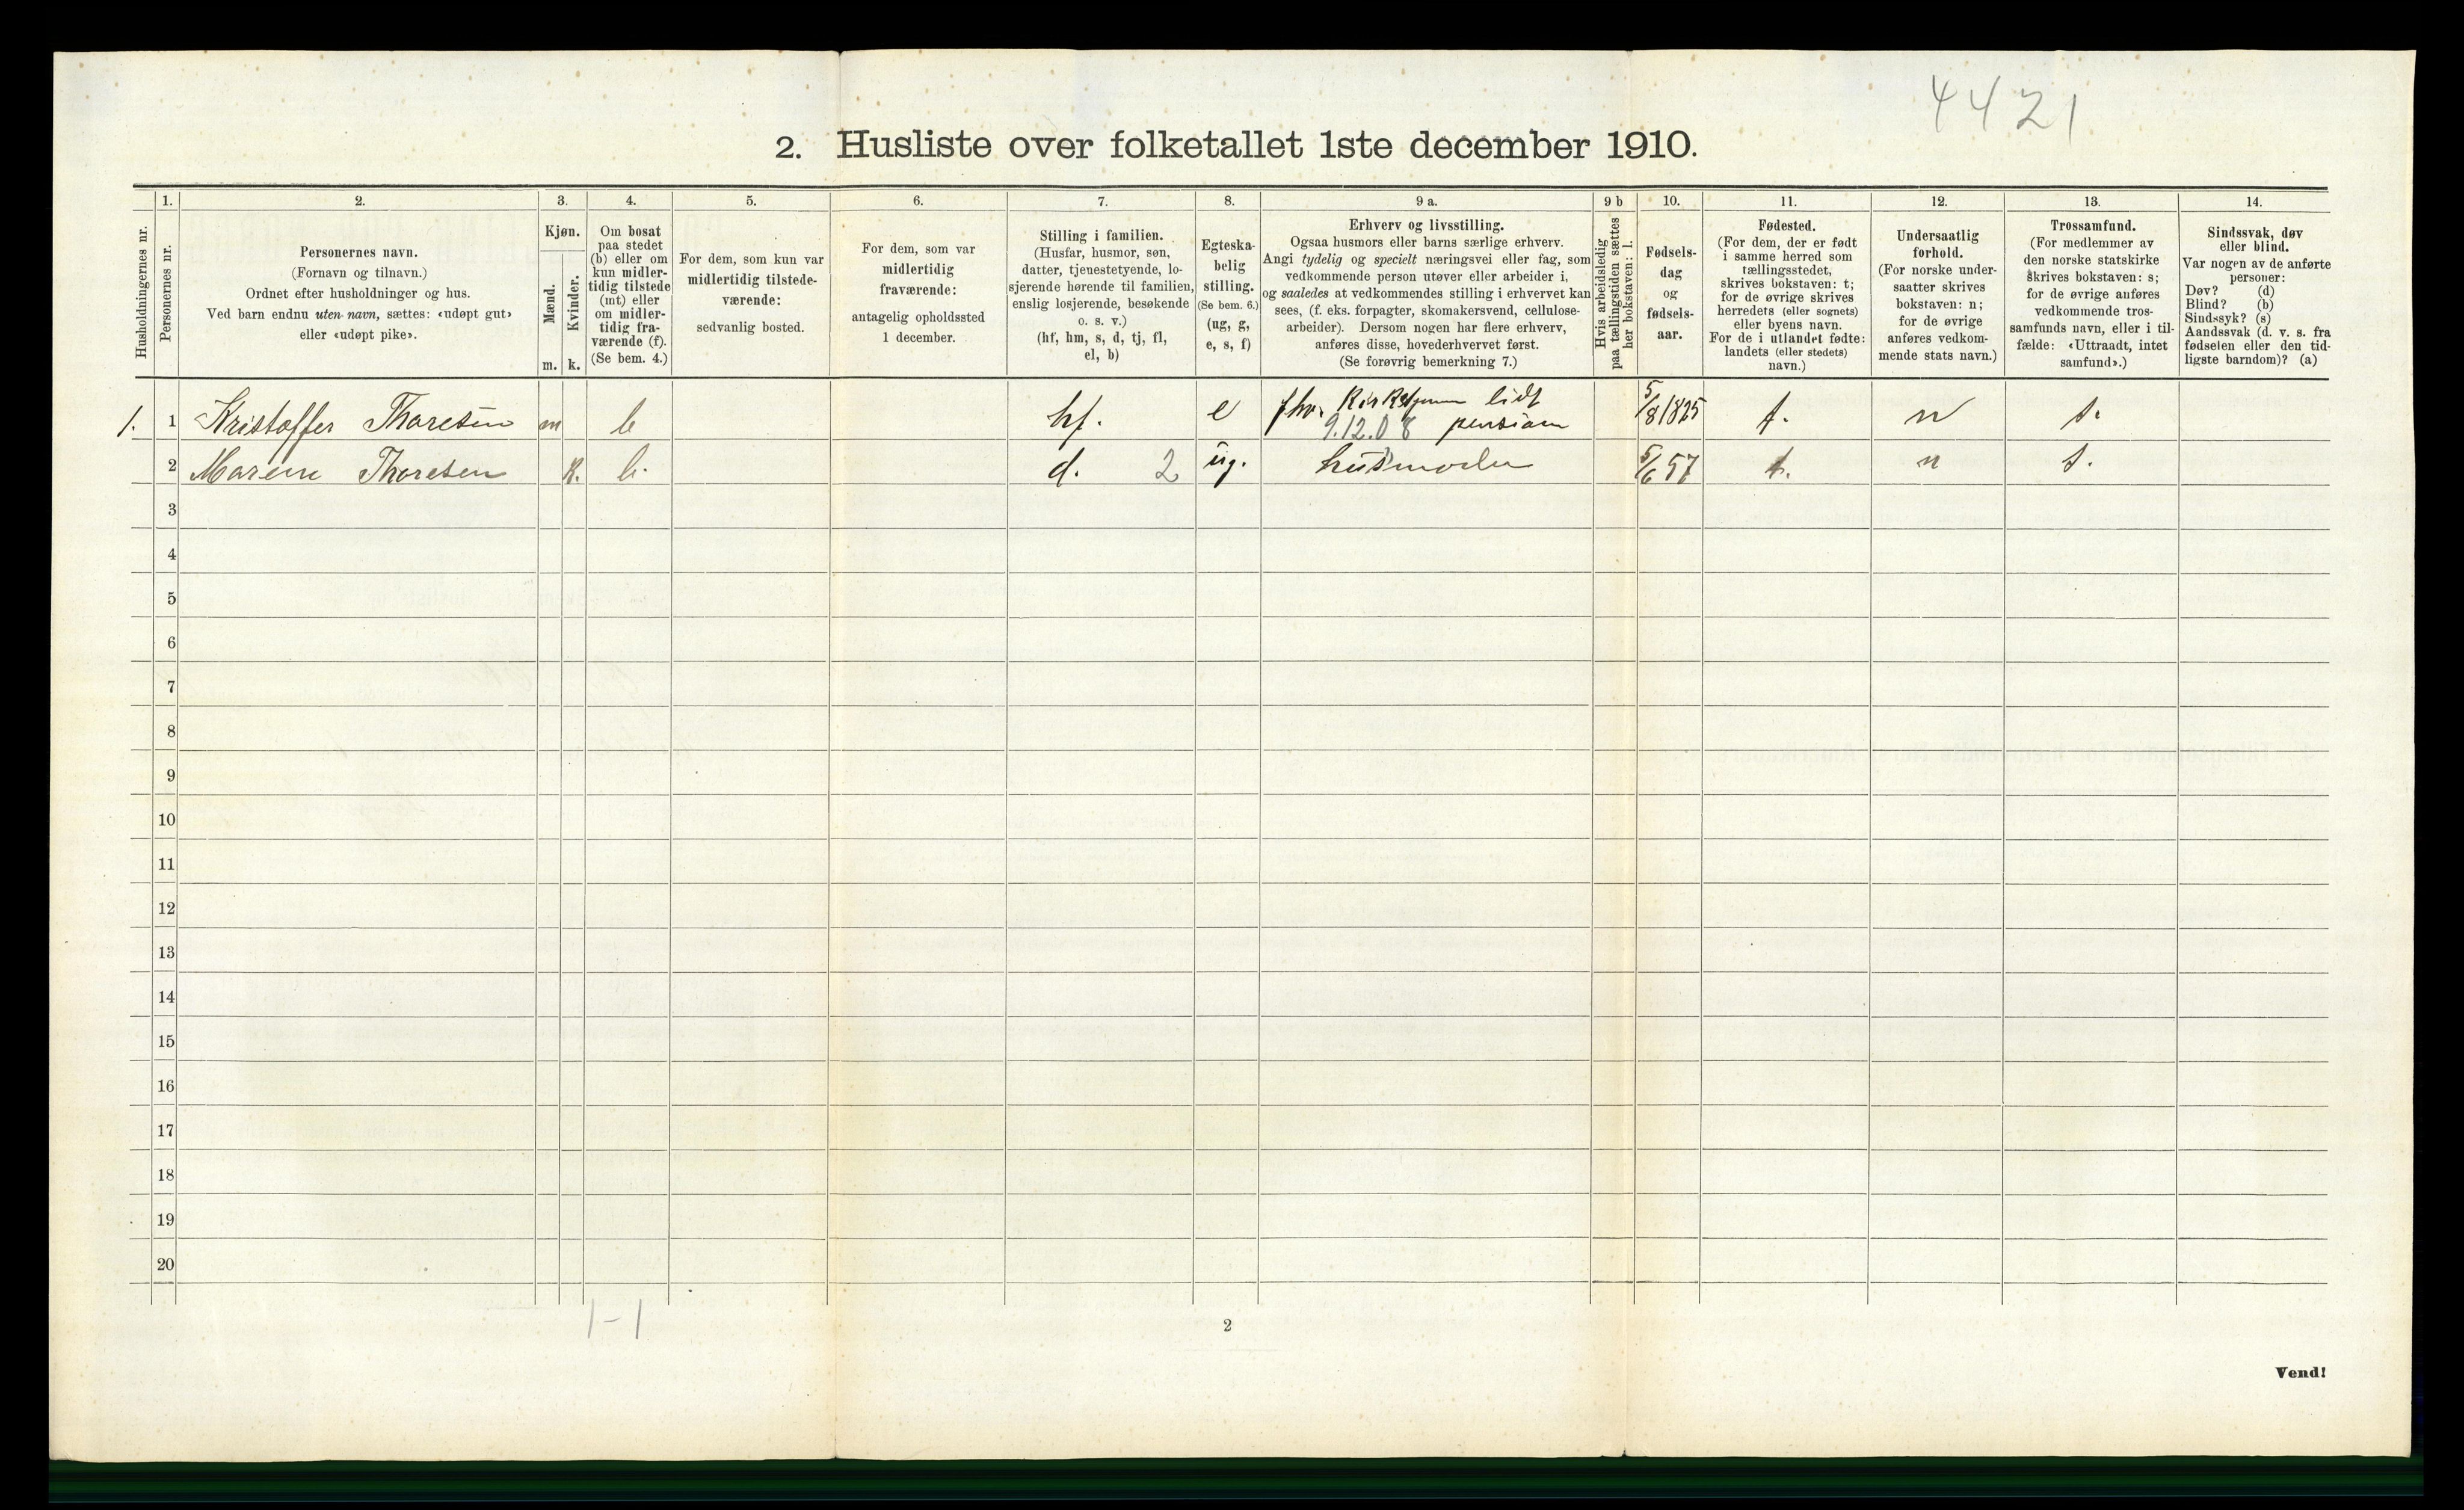 4421
2. Husliste over folketallet 1ste december 1910.
Husholdningernes nr.
1.
Personernes nr.
2.
Personernes navn.
(Fornavn og tilnavn.)
Ordnet efter husholdninger og hus.
Ved barn endnu uten navn, sættes: «udøpt gut»
eller «udøpt pike».
3.
Kjøn.
Mænd.
m.
Kvinder.
k.
4.
Om bosat
paa stedet
(b) eller om
kun midler-
tidig tilstede
(mt) eller
om midler-
tidig fra-
værende (f).
(Se bem. 4.)
5.
For dem, som kun var
midlertidig tilstede-
værende:
sedvanlig bosted.
6.
For dem, som var
midlertidig
fraværende:
antagelig opholdssted
1 december.
7.
Stilling i familien.
(Husfar, husmor, søn,
datter, tjenestetyende, lo-
sjerende hørende til familien,
enslig losjerende, besøkende
o. s. v.)
(hf, hm, s, d, tj, fl,
el, b)
8.
Egteska-
belig
stilling.
(Se bem. 6.)
(ug, g,
e, s, f)
9 a.
Erhverv og livsstilling.
Ogsaa husmors eller barns særlige erhverv.
Angi tydelig og specielt næringsvei eller fag, som
vedkommende person utøver eller arbeider i,
og saaledes at vedkommendes stilling i erhvervet kan
sees, (f. eks. forpagter, skomakersvend, cellulose-
arbeider). Dersom nogen har flere erhverv,
anføres disse, hovederhvervet først.
(Se forøvrig bemerkning 7.)
9 b
Hvis arbeidsledig
paa tællingstiden sættes
her bokstaven: l.
10.
Fødsels-
dag
og
fødsels-
aar.
11.
Fødested.
(For dem, der er født
i samme herred som
tællingsstedet,
skrives bokstaven: t;
for de øvrige skrives
herredets (eller sognets)
eller byens navn.
For de i utlandet fødte:
landets (eller stedets)
navn.)
12.
Undersaatlig
forhold.
(For norske under-
saatter skrives
bokstaven: n;
for de øvrige
anføres vedkom-
mende stats navn.)
13.
Trossamfund.
(For medlemmer av
den norske statskirke
skrives bokstaven: s;
for de øvrige anføres
vedkommende tros-
samfunds navn, eller i til-
fælde: «Uttraadt, intet
samfund».)
14.
Sindssvak, døv
eller blind.
Var nogen av de anførte
personer:
Døv? (d)
Blind? (b)
Sindssyk? (s)
Aandssvak (d. v. s. fra
fødselen eller den tid-
ligste barndom)? (a)
1. 1 Kristoffer Thoresen m b hf. e fhv. lidt 5/8 1825 t. n s.
9.12.08 pension
2 Maren Thoresen k. b. d. 2 ug. husmoder 5/6 57 t. n s.
3
4
5
6
7
8
9
10
11
12
13
14
15
16
17
18
19
20
1-1
2
Vend!